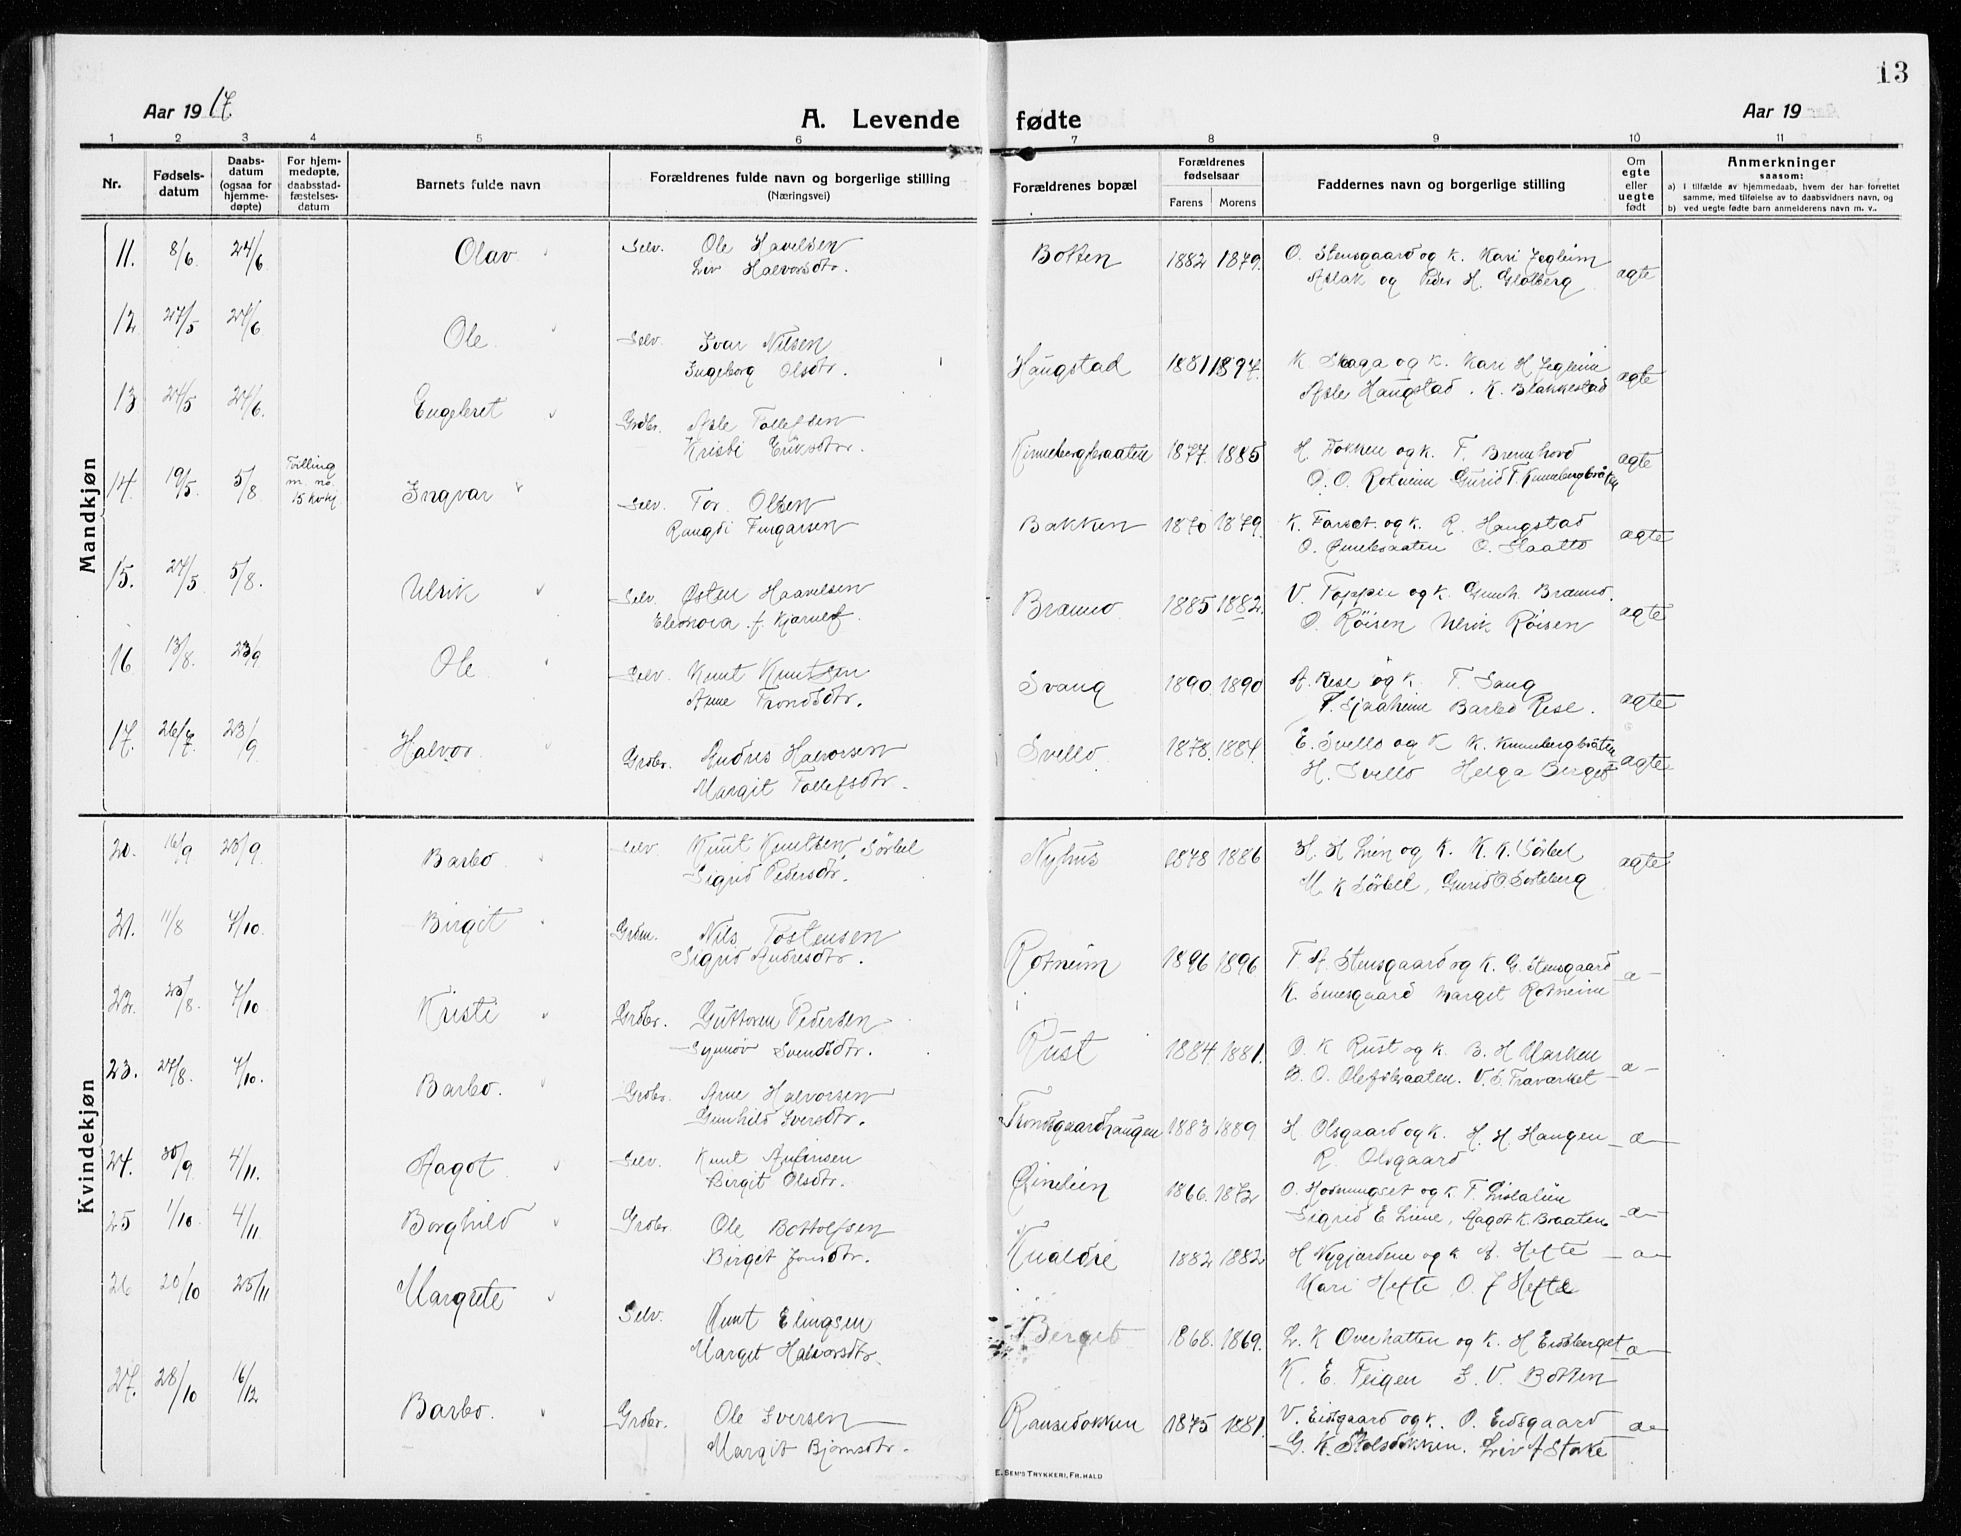 13
Aar 1917.
A. Levende fødte
Aar 19
1 2 3 4 5 6 7 8 9 10 11
Nr.
Fødsels-
datum
Daabs-
datum
(ogsaa for
hjemme-
døpte)
For hjem-
medøpte,
daabsstad-
fæstelses-
datum
Barnets fulde navn
Forældrenes fulde navn og borgerlige stilling
(Næringsvei)
Forældrenes bopæl
Forældrenes
fødselsaar
Farens Morens
Faddernes navn og borgerlige stilling
Om
egte
eller
uegte
født
Anmerkninger
saasom:
a) I tilfælde av hjemmedaab, hvem der har forrettet
samme, med tilføielse av to daabsvidners navn, og
b) ved uegte fødte barn anmelderens navn m. v..
Mandkjøn
11. 8/6. 24/6 Olav Selv. Ole Havelsen Botten 1882 1879. O. Stensgaard og k. Kari Jegleim ægte
Liv Halvorsdtr. Aslak og Peder H. Glotberg
12 27/5 24/6 Ole. Selv. Ivar Nilsen Haugstad 1881 1897. K. Skaga og k. Kari H Jegleim ægte
Ingeborg Olsdtr. Asle Haugstad. K. Blakkestad
13 24/5 24/6. Engebret Grdbr. Asle Tollefsen Kinnebergbraaten 1877. 1885 H. Dokken og k. T. Brennhovd ægte
Kristi Eriksdtr. O. O. Rotneim Gurid T. Kinnebergbråten
14. 19/5. 5/8 Tvilling
m. no.
15 kvkj Ingvar Selv. Tor Olsen Bakken 1870 1879. K. Farset og k. R. Haugstad ægte
Rangdi Fingarsen O. Slaatto
15. 24/5 5/8. Ulrik Selv. Østen Haavelsen Bramo 1885 1882. V. Toppen og k. Gunh. Bramo. ægte
Eleonora f. Kjarulf. O. Røisen Ulrik Røisen
16 13/8. 23/9 Ole Selv. Knut Knutsen Svang 1890 1890 A. Rese og k. T. Sang ægte
Anne Trondsdtr. T. Sjaaheim Barbo Rese.
17. 26/7. 23/9 Halvor. Grdbr. Andres Halvorsen Svello. 1878. 1884. E. Svello og k K. Kinnebergbråten ægte
Margit Tollefsdtr. H. Svello Helga Berget
Kvindekjøn
20. 16/9 23/9. Barbo Selv Knut Knutsen Sørbel Nyhus 1878 1886 H. H Lien og k. K. K. Sørbel ægte
Sigrid Pedersdtr. M. K Sørbel, Gurid O Sorteberg
21. 11/8 7/10. Birgit Nils Tostensen Rotneim 1896 1896 T. A. Stensgaard og k. G. Stensgaard – æ –
Sigrid Andresdtr. K. Margit Rotneim
22. 23/8. 7/10. Kristi Grdbr. Guttorm Pedersen Rust 1884. 1881. O. K Rust og k. B. H Marken – æ –
Synnøv Svendsdtr. B. O. Olefsbraaten.
23. 24/8. 7/10. Barbo. Grdbr. Arne Halvorsen Trondsgaardhaugen 1883 1889 H Olsgaard og k. H. H. Haugen – æ –
Gunhild Iversdtr. R. Olsgaard
24. 30/9 4/11. Aagot Selv. Knut Anfinsen 1866. 1872 O. Hovrungset og k. T. Lislalien – æ –
Birgit Olsdtr. Sigrid E Liene, Aagot K. Braaten
25 1/10. 4/11 Borghild Grdbr Ole Bottolfsen 1882 1882 H Nygjærdene og k A. Hefte – æ –
Birgit Jonsdtr. Kari Hefte O. J Hefte
26 20/10 25/11 Margrete Selv. Knut Elingsen Berget 1868. 1869. L. K Overhatten og k. H Eidsberget – æ –
Marget Halvorsdtr. K. E. Feigen S. V. Botten
27. 28/10 16/12 Barbo. Grdbr. Ole Iversen Ransedokken 1875 1881. V. Eidsgaard og k. O. Eidsgaard – æ –
Margit Bjørnsdtr. G. K. Stolsdokken. Liv A Stake
E. Sem's Trykkeri, Fr.hald